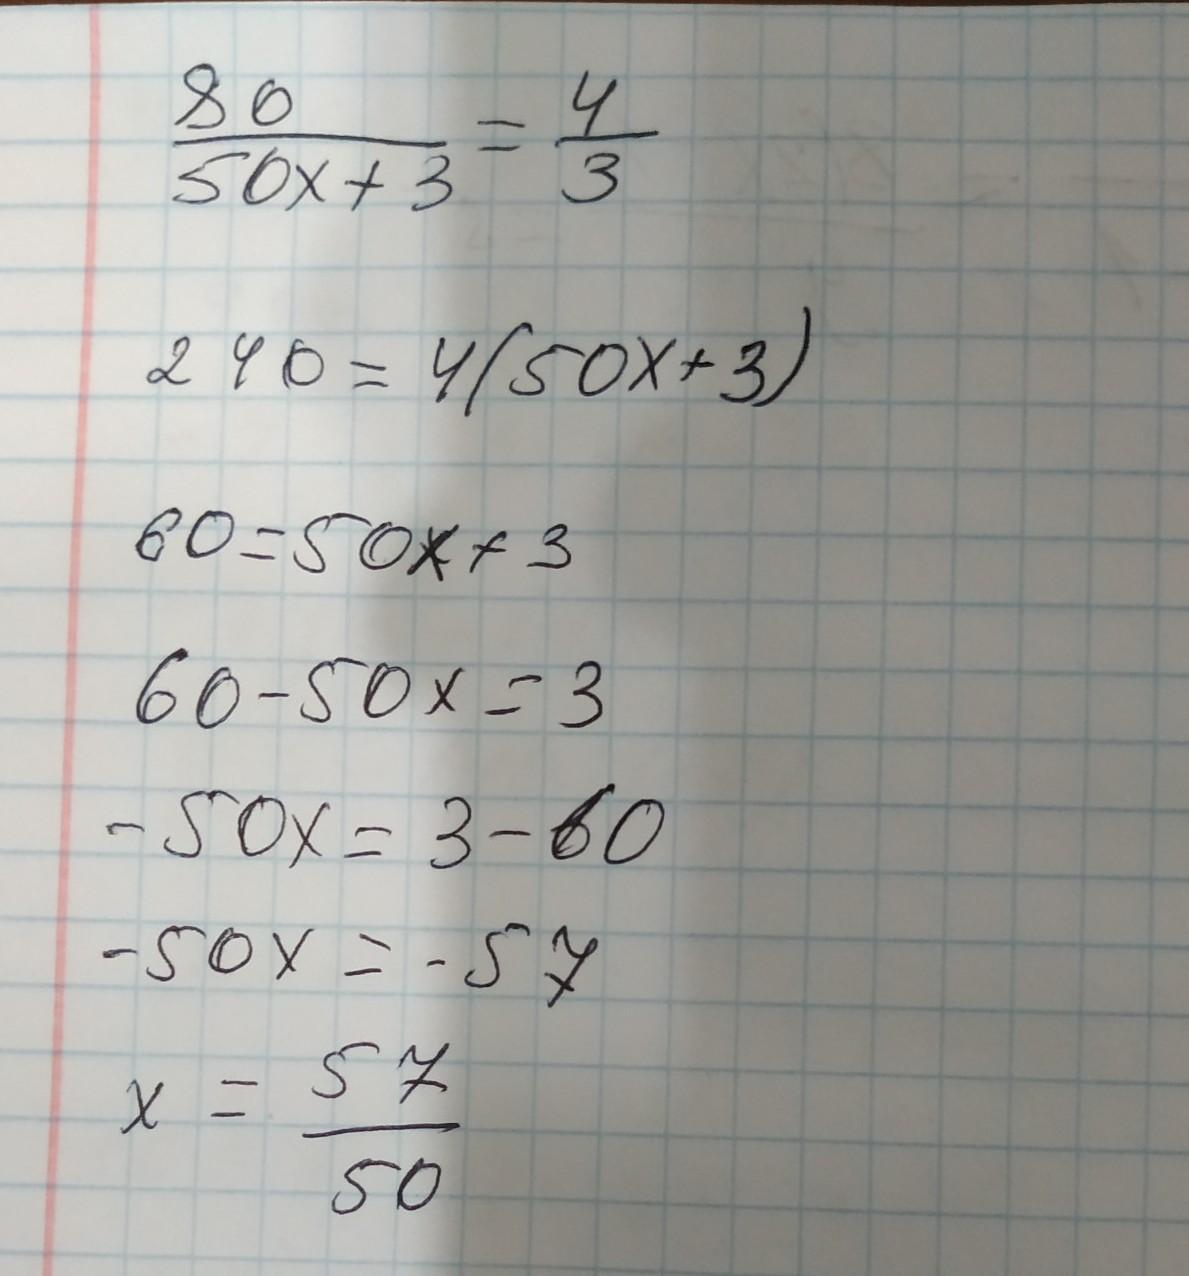 80/(50x+3) = 4/3
240 = 4(50x+3)
60=50x+3
60-50x=3
-50x=3-60
-50x=-57
x = 57/50